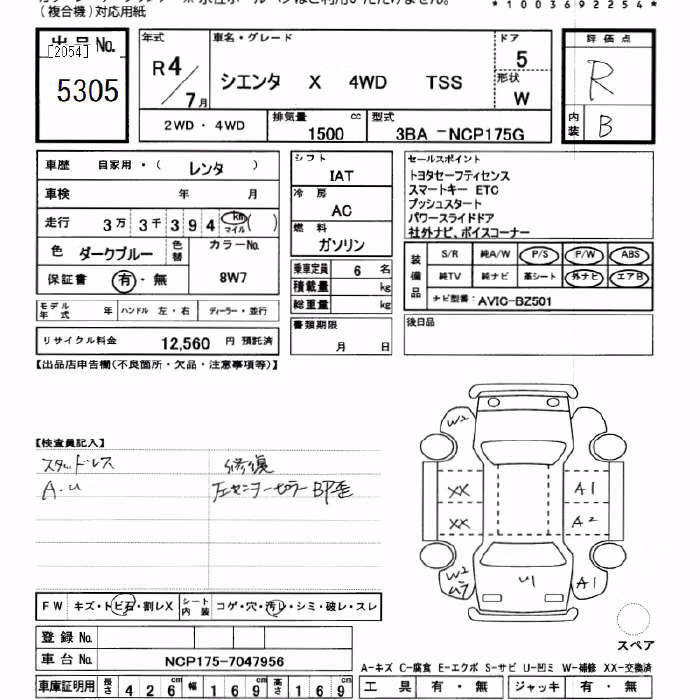 (複合機)対応用紙
*1003692254*
出品No.
[2054]
5305
年式
R4/7月
車名・グレード
シエンタ X 4WD TSS
ドア
5
形状
W
評価点
R
内装
B
2WD・4WD
排気量
1500 cc
型式
3BA -NCP175G
車歴 自家用・( レンタ )
車検 年 月
走行 3万 3千 3 9 4 km マイル ( )
色 ダークブルー
色替
カラーNo.
8W7
保証書 有・無
モデル年式 年
ハンドル 左・右
ディーラー・並行
リサイクル料金 12,560 円 預託済
シフト
IAT
冷房
AC
燃料
ガソリン
乗車定員 6 名
積載量 kg
総重量 kg
書類期限
月 日
セールスポイント
トヨタセーフティセンス
スマートキー ETC
プッシュスタート
パワースライドドア
社外ナビ、ボイスコーナー
装備品
S/R 純A/W P/S P/W ABS
純TV 純ナビ 革シート 外ナビ エアB
ナビ型番: AVIC-BZ501
後日品
【出品店申告欄(不良箇所・欠品・注意事項等)】
【検査員記入】
スタッドレス
A.u
修復
左センターピラー部歪
W2
XX
XX
A1
A2
W2
U1
A1
スペア
FW キズ・トビ石・割レX
シート内装 コゲ・穴・汚レ・シミ・破レ・スレ
登録No.
車台No. NCP175-7047956
車庫証明用 長さ 426cm 幅 169cm 高さ 169cm
A-キズ C-腐食 E-エクボ S-サビ U-凹ミ W-補修 XX-交換済
工具 有・無 ジャッキ 有・無